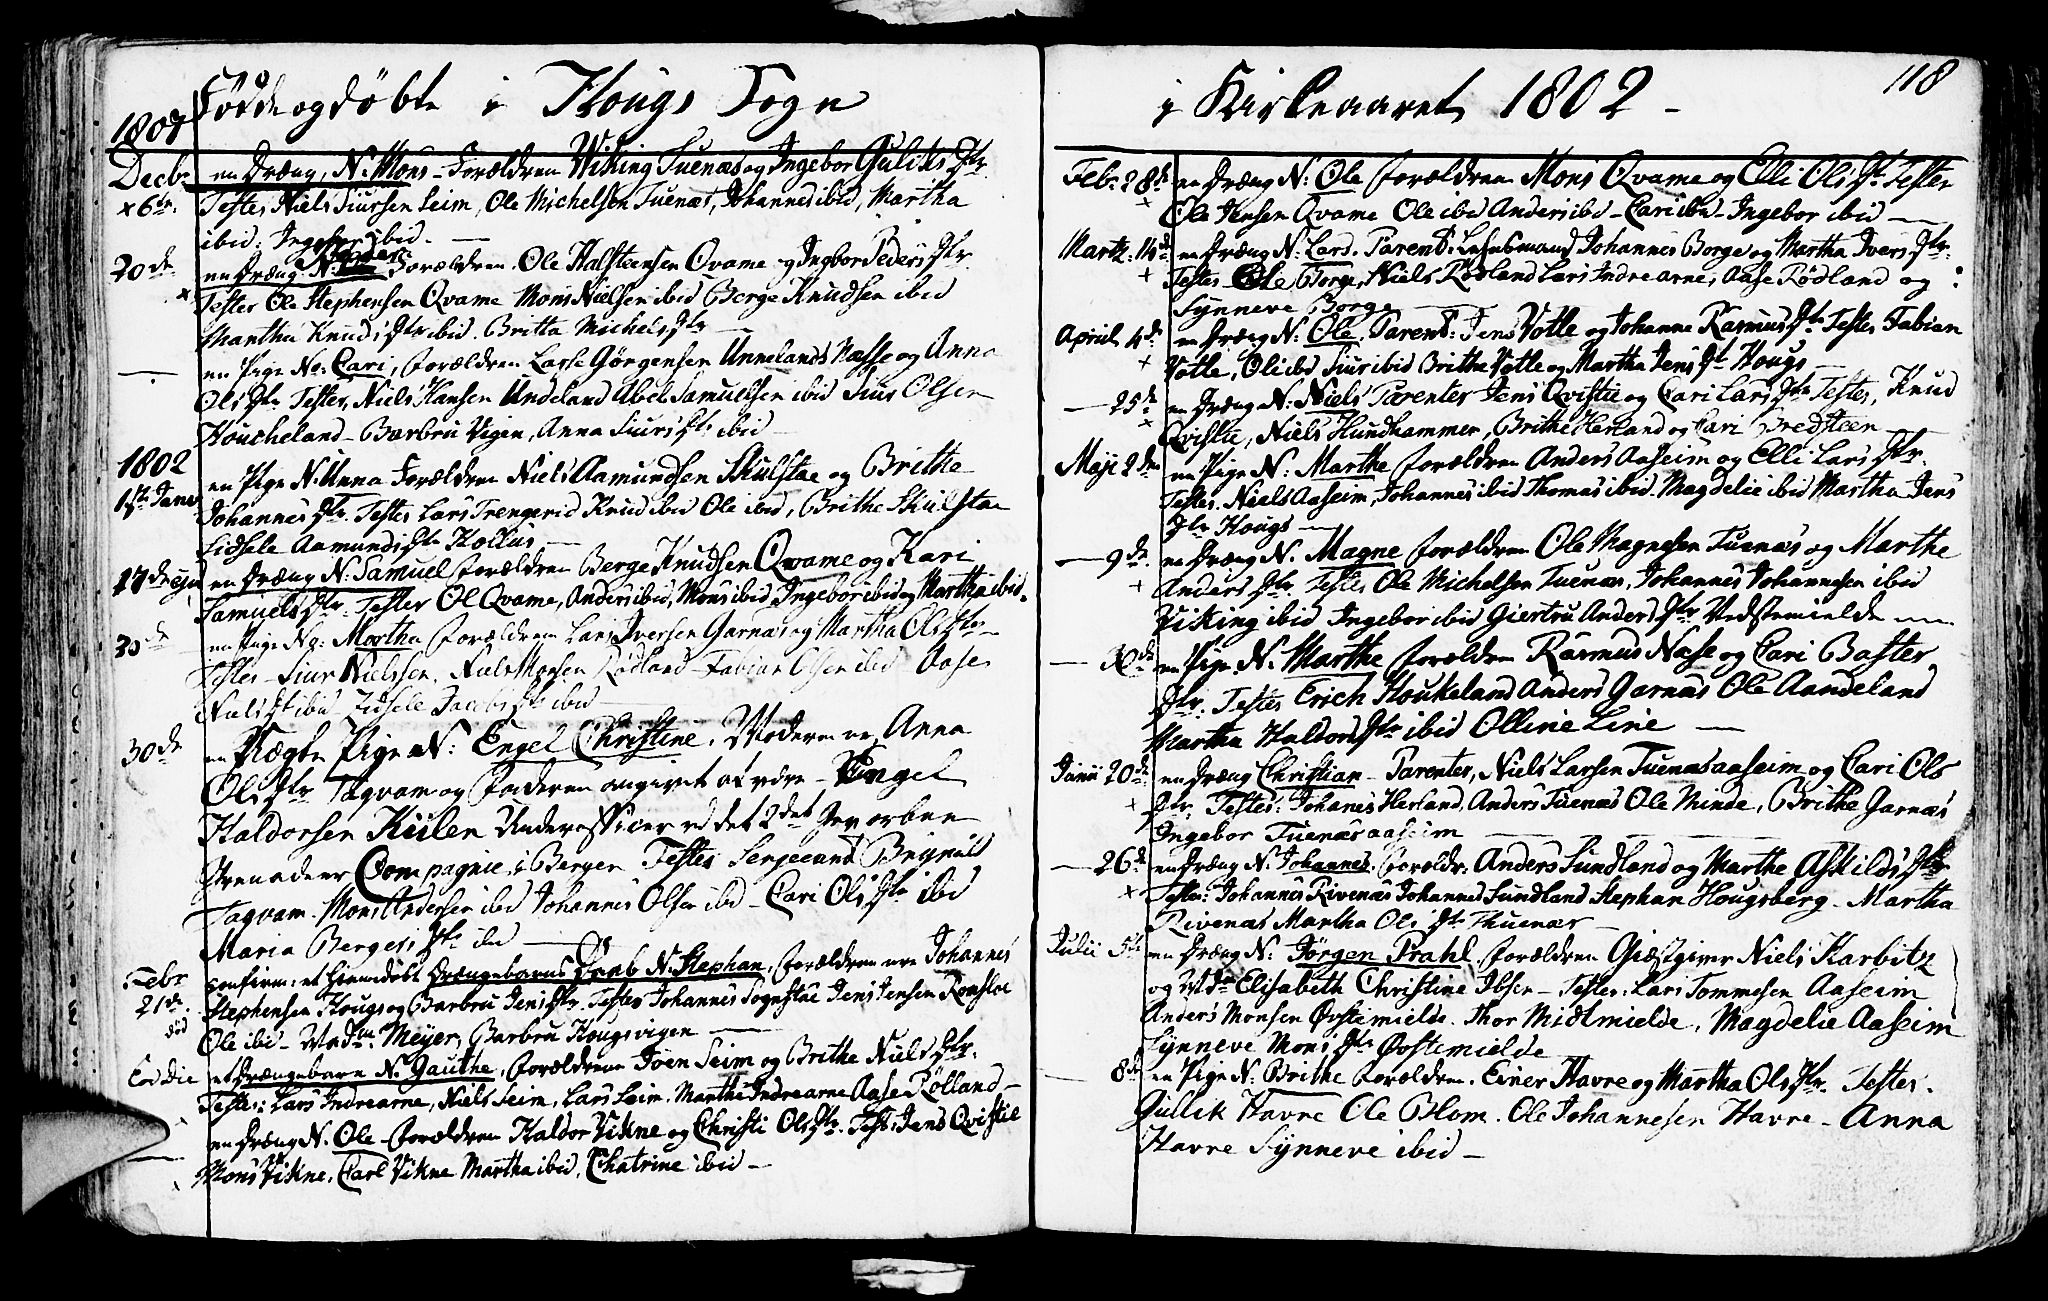 Födde og döbte i Hougs Sogn
1801
Decbr en Dræng, N: Mons - Forældren Wiking Tuenæs og Ingebor Gulichs Dtr
x 6te. Testes Niels Siursen Seim, Ole Michelsen Tuenæs, Johannes ibid, Martha
ibid: Ingebor ibid. —
20de en Dræng N: Peder Forældren. Ole Halsteensen Qvame og Ingbor Peders Dtr.
x Testes Ole Stephensen Qvame Mons Nielsen ibid Berge Knudsen ibid
Martha Knuds Dtr ibid. Britta Michels Dtr —
— en Pige No: Cari, Forældren Lasse Görgensen Unnelands Næsse og Anna
Ols Dtr Testes, Niels Hansen Undeland Abel Samuelsen ibid Siur Olsen
Houcheland - Barbru Vigen, Anna Siurs Dtr ibid —
1802
1ste Janr en Pige N: Anna Forældren Niels Aamundsen Skulstae og Brithe
Johannes Dtr. Testes Lars Trengerid Knud ibid Ole ibid, Brithe Skulstae
Sidsele Aamunds Dtr Hollus —
17de ejus en Dræng N: Samuel Forældren Berge Knudsen Qvame og Kari
Samuels Dtr. Testes Ol Qvame, Anders ibid, Mons ibid, Ingebor ibid og Martha ibid.
30de en Pige No: Martha Forældren Lars Iversen Garnæs og Martha Ols Dtr -
Testes - Siur Nielssen, Niels Monsen Rödland - Fabian Olsen ibid Aase
Niels Dtr ibid Sidsele Jacobs Dtr ibid —
30de en Uægte Pige N: Engel Christine. Moderen er, Anna
Ols Dtr Tagvam og Faderen angivet at være - Engel
Haldorsen Kulen Underofficer ved det 2det Gevorbne
Grenadeer Compagnie i Bergen Testes Sergeand Brynild
Tagvam. Mons Andersen ibid Johannes Olsen ibd - Cari Ols Dtr ibid
Maria Berges Dtr ibd —
Febr confirm: et hiemdöbt Drængebarns Daab N. Stephan, Forældren ere Johannes
21de Stephensen Hougs og Barbru Jens Dtr. Testes Johannes Sognstae Jens Jensen Romsloe
död Ole ibid - Madm. Meyer, Barbru Hougsvigen —
Eod die et Drængebarn N. Gauthe, Forældrene Joen Seim og Brithe Niels Dtr.
Testes: Lars Indrearne, Niels Seim, Lars Seim. Marthe Indrearne Aase Rölland -
— en Dræng N. Ole - Forældren Haldor Vikne og Christi Ols Dtr. Test: Jens Qvistie
x Mons Vikne, Carl Vikne Martha ibid, Chatrine ibid —
i Kirkeaaret 1802 - 118
Febr: 28de en Dræng N: Ole Forældren Mons Qvame og Elli Ols Dtr Testes
+ Ole Jensen Qvame Ole ibid Anders ibid - Cari ibid - Ingebor ibid —
Martz: 14de en Dræng N: Lars. Parent: Lehnsmand Johannes Borge og Martha Ivers Dtr.
+ Testes Ole Borge, Niels Rödland Lars Indrearne, Aase Rödland og
Synneve Borge
April 4de en Dræng N: Ole. Parent: Jens Votle og Johanne Rasmus Dtr Testes Fabian
+ Votle, Ol ibd Siur ibid Brithe Votle og Martha Jens Dtr Hougs —
— 25de en Dræng N: Niels Parenter Jens Qvistie og Cari Lars Dtr Testes, Knud
x Qvistie, Niels Hundhammer, Brithe Herland og Cari Bredsteen
Maji 2den en Pige N: Marthe Forældren Anders Aaseim og Elli Lars Dtr.
Testes. Niels Aaseim, Johannes ibid Thomas ibid. Magdelie ibid Martha Jens
Dtr Hougs —
— 9de. en Dræng N. Magne Forældren Ole Magnesen Tuenæs og Marthe
+ Anders Dtr. Testes Ole Michelsen Tuenæs, Johannes Johannesen ibid
Viking ibid Ingebor ibid Giertru Anders Dtr Vedstemielde —
— 30de en Pige N. Marthe Forældren Rasmus Nase og Cari Baster
Dtr. Testes Erich Houkeland Anders Garnæs Ole Aandeland
Martha Haldors Dtr ibid Olline Line —
Junii 20de en Dræng Christian - Parenter, Niels Larsen Tuenæsaaseim og Cari Ols
+ Dtr. Testes: Johanes Herland, Anders Tuenæs Ole Minde, Brithe Garnæs
Ingebor Tuenæsaaseim —
— 26de en Dræng N. Johannes, Forældr: Anders Sundland og Marthe Askilds Dtr
+ Testes: Johannes Rivenæs Johannes Sundland Stephan Hougsberg - Martha
Rivenæs Martha Ols Dtr Thuenæs —
Julii 5te en Dræng N: Jörgen Prahl. Forældren Giæstgiver Niels Karbitz
og Mdm Elisabeth Christine Ibsen - Testes: Lars Tommesen Aaseim
Anders Monsen Övstemielde. Thor Midtmielde, Magdelie Aaseim
Synneve Mons Dtr Övstemielde
— 8de en Pige N: Brithe Forældren. Einer Havre og Martha Ols Dtr. Testes.
Gullik Havre Ole Blom. Ole Johannesen Havre - Anna
Havre Synneve ibid -